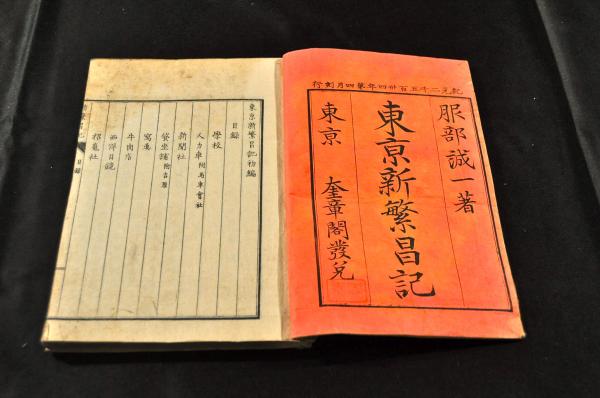 紀元二千五百卅四年第四月刻行
服部誠一著
東亰新繁昌記
東亰 奎章閣發兌
東亰新繁昌記初編
目録
學校
人力車附馬車會社
新聞社
貸坐舗附吉原
寫真
牛肉店
西洋目鏡
招魂社
目録